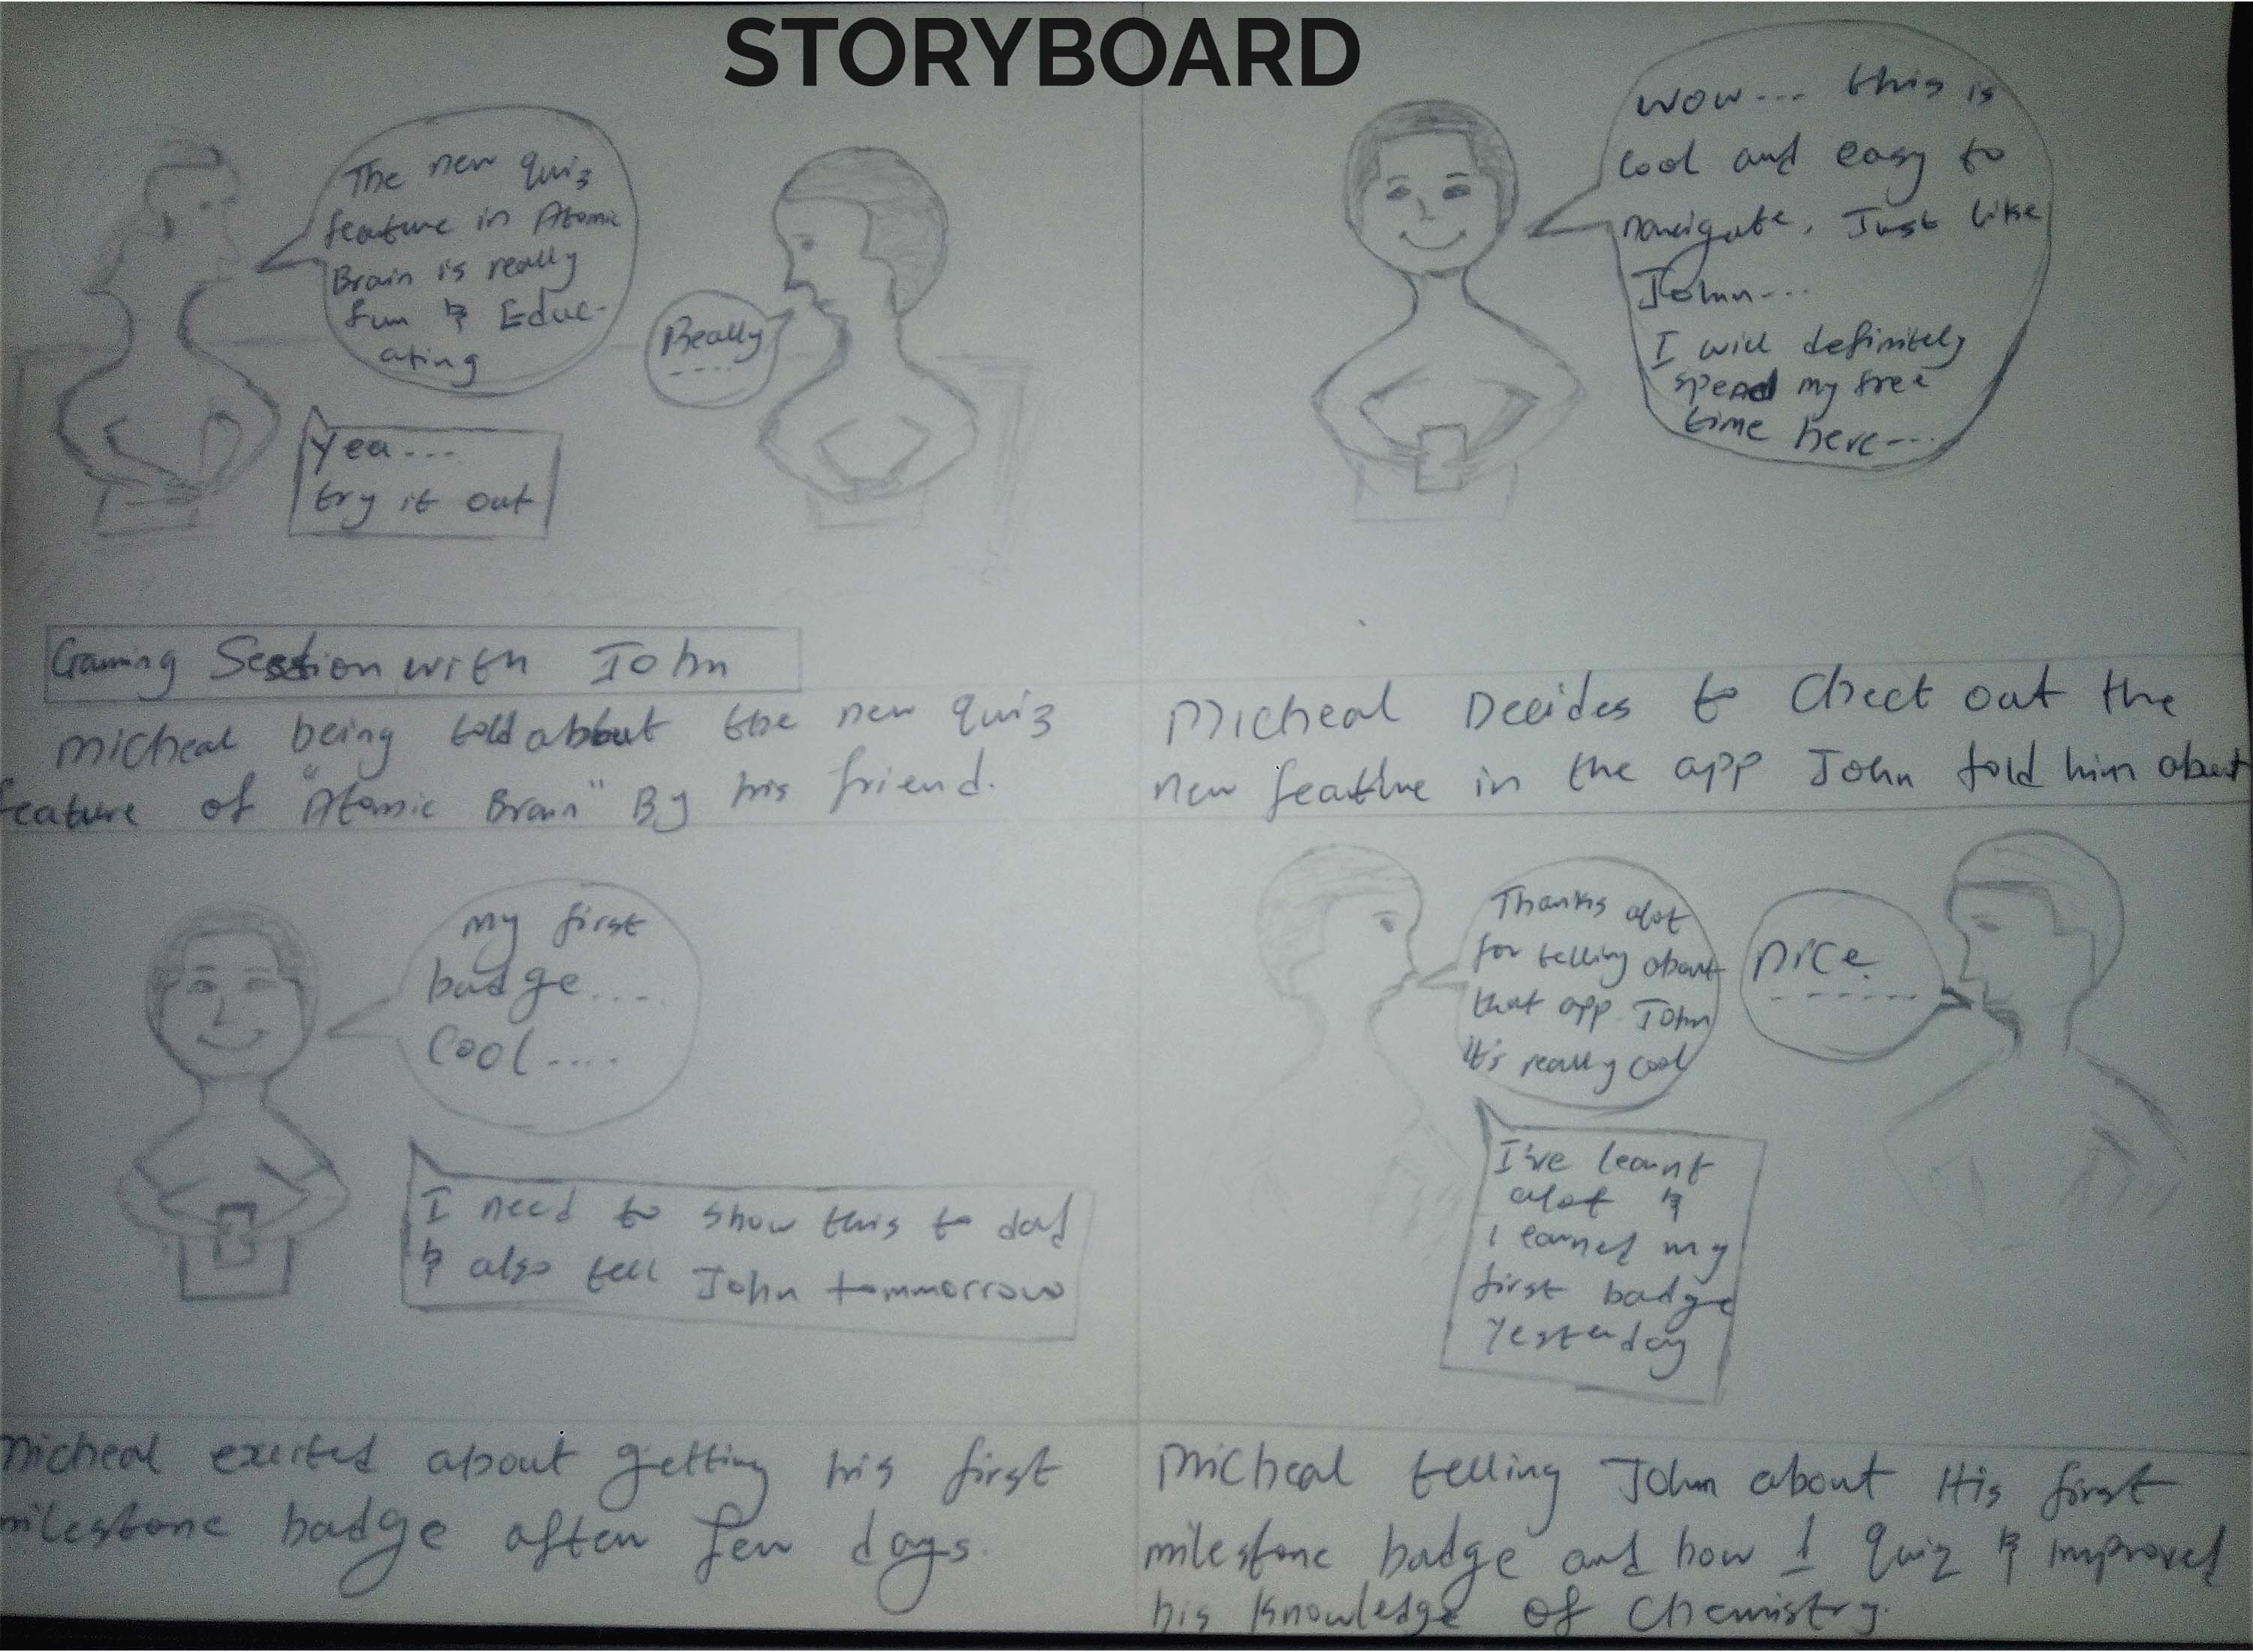 STORYBOARD
The new quiz
feature in Atomic
Brain is really
fun & Educ-
ating
Really
----
Yea---
try it out
Gaming Session with John
Micheal being told about the new quiz
feature of "Atomic Brain" By his friend.
Wow--- this is
cool and easy to
navigate. Just like
John---
I will definitely
spend my free
time here---
Micheal Decides to Check out the
new feature in the app John told him about
My first
badge....
Cool....
I need to show this to dad
& also tell John tommorrow
Micheal excited about getting his first
milestone badge after few days.
Thanks alot
for telling about
that app John
it's really cool
nice
------
I've learnt
alot &
I earned my
first badge
Yesterday
Micheal telling John about His first
milestone badge and how quiz & improved
his Knowledge of Chemistry.